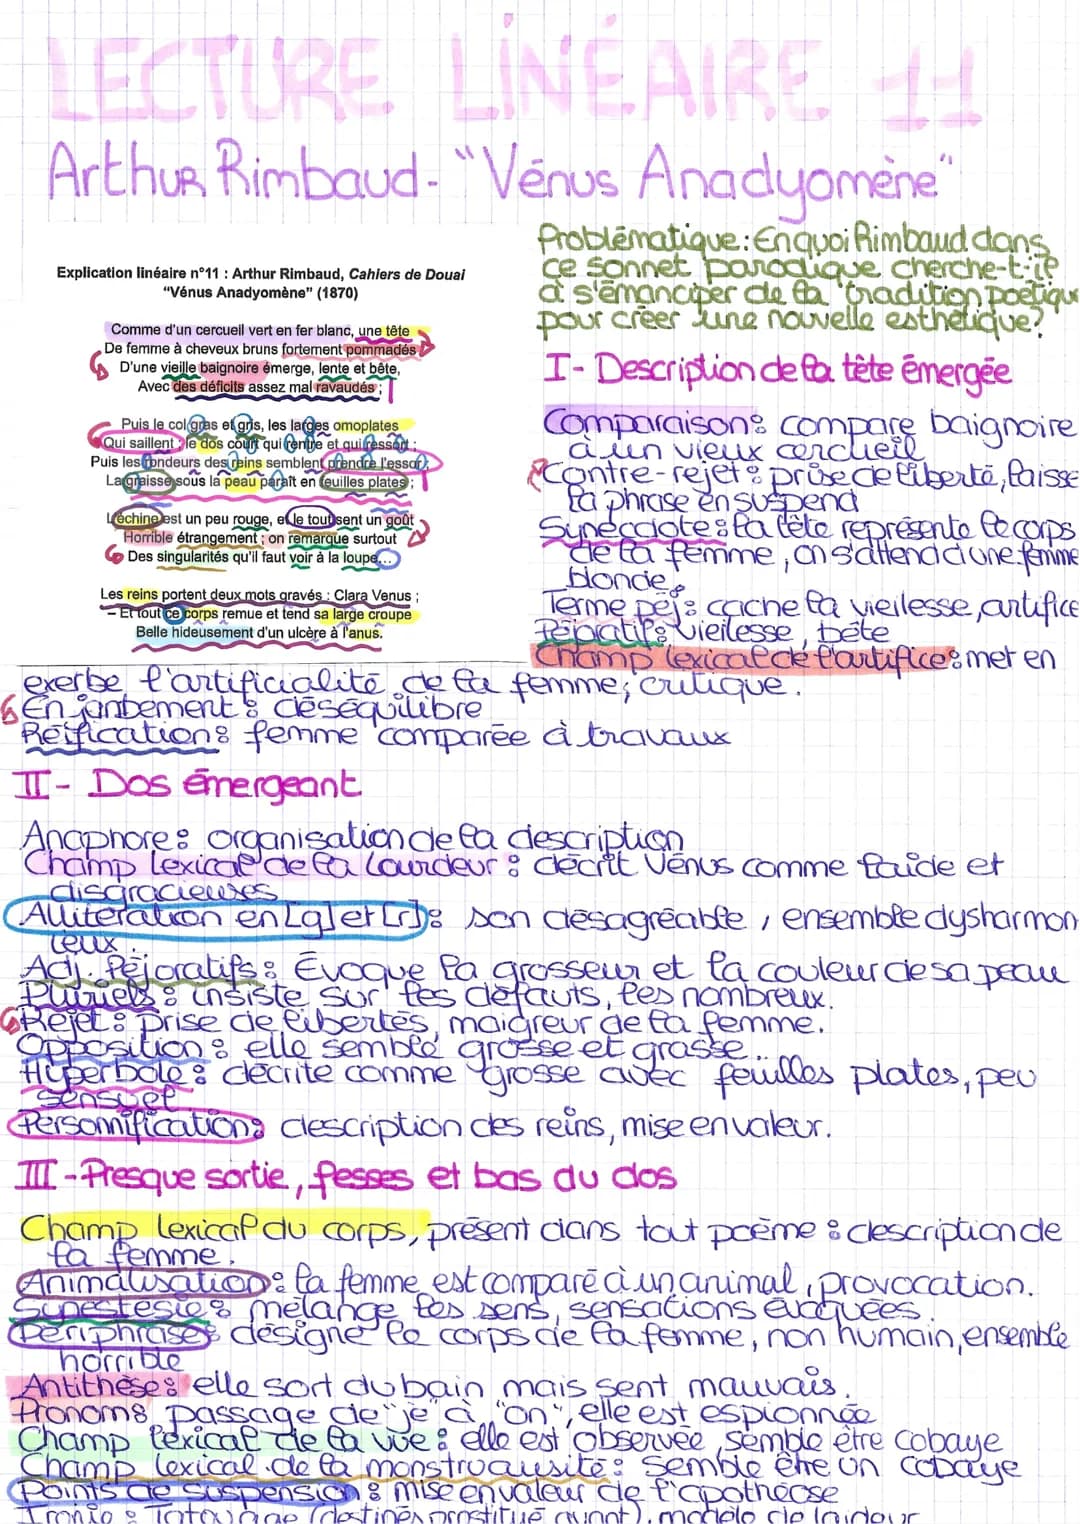 LECTURE LINÉAIRE 11
Arthur Rimbaud - "Vénus Anadyomène"
Explication linéaire n°11 : Arthur Rimbaud, Cahiers de Douai
"Vénus Anadyomène" (1870)
Comme d'un cercueil vert en fer blanc, une tête
De femme à cheveux bruns fortement pommadés
D'une vieille baignoire émerge, lente et bête,
Avec des déficits assez mal ravaudés ;
Puis le col gras et gris, les larges omoplates
Qui saillent ; le dos court qui rentre et qui ressort ;
Puis les rondeurs des reins semblent prendre l'essor ;
La graisse sous la peau paraît en feuilles plates ;
L'échine est un peu rouge, et le tout sent un goût
Horrible étrangement ; on remarque surtout
Des singularités qu'il faut voir à la loupe...
Les reins portent deux mots gravés : Clara Venus ;
– Et tout ce corps remue et tend sa large croupe
Belle hideusement d'un ulcère à l'anus.
Problématique : En quoi Rimbaud dans
ce sonnet parodique cherche-t-il
à s'émanciper de la tradition poétiqu
pour créer une nouvelle esthétique?
I - Description de la tête émergée
Comparaison : compare baignoire
à un vieux cercueil
Contre-rejet : prise de liberté, laisse
la phrase en suspend
Synecdote : la tête représente le corps
de la femme, on s'attend d'une femme
blonde.
Terme péj : cache la vieillesse, artifice
Péjoratif : vieillesse, bête
Champ lexical de l'artifice : met en
exerbe l'artificialité de la femme, critique.
Enjambement : déséquilibre
Réification : femme comparée à travaux
II - Dos émergeant
Anaphore : organisation de la description
Champ lexical de la lourdeur : décrit Vénus comme laide et
disgracieuses
Allitération en [g] et [r] : son désagréable, ensemble dysharmon
ieux.
Adj. Péjoratifs : Évoque la grosseur et la couleur de sa peau
Pluriels : insiste sur les défauts, les nombreux.
Rejet : prise de libertés, maigreur de la femme.
Opposition : elle semble grosse et grasse...
Hyperbole : décrite comme grosse avec feuilles plates, peu
sensuel
Personnification : description des reins, mise en valeur.
III - Presque sortie, fesses et bas du dos
Champ lexical du corps, présent dans tout poème : description de
la femme.
Animalisation : la femme est comparé à un animal, provocation.
Synestesie : mélange les sens, sensations évoquées.
Périphrases : désigne le corps de la femme, non humain, ensemble
horrible
Antithèse : elle sort du bain mais sent mauvais.
Pronoms passage de "je" à "on", elle est espionnée
Champ lexical de la vue : elle est observée, semble être cobaye
Champ lexical de la monstruausité : Semble être un cobaye
Points de suspension : mise en valeur de l'apothéose
Ironie : Tatouage (destinés prostitué avant), modèle de laideur